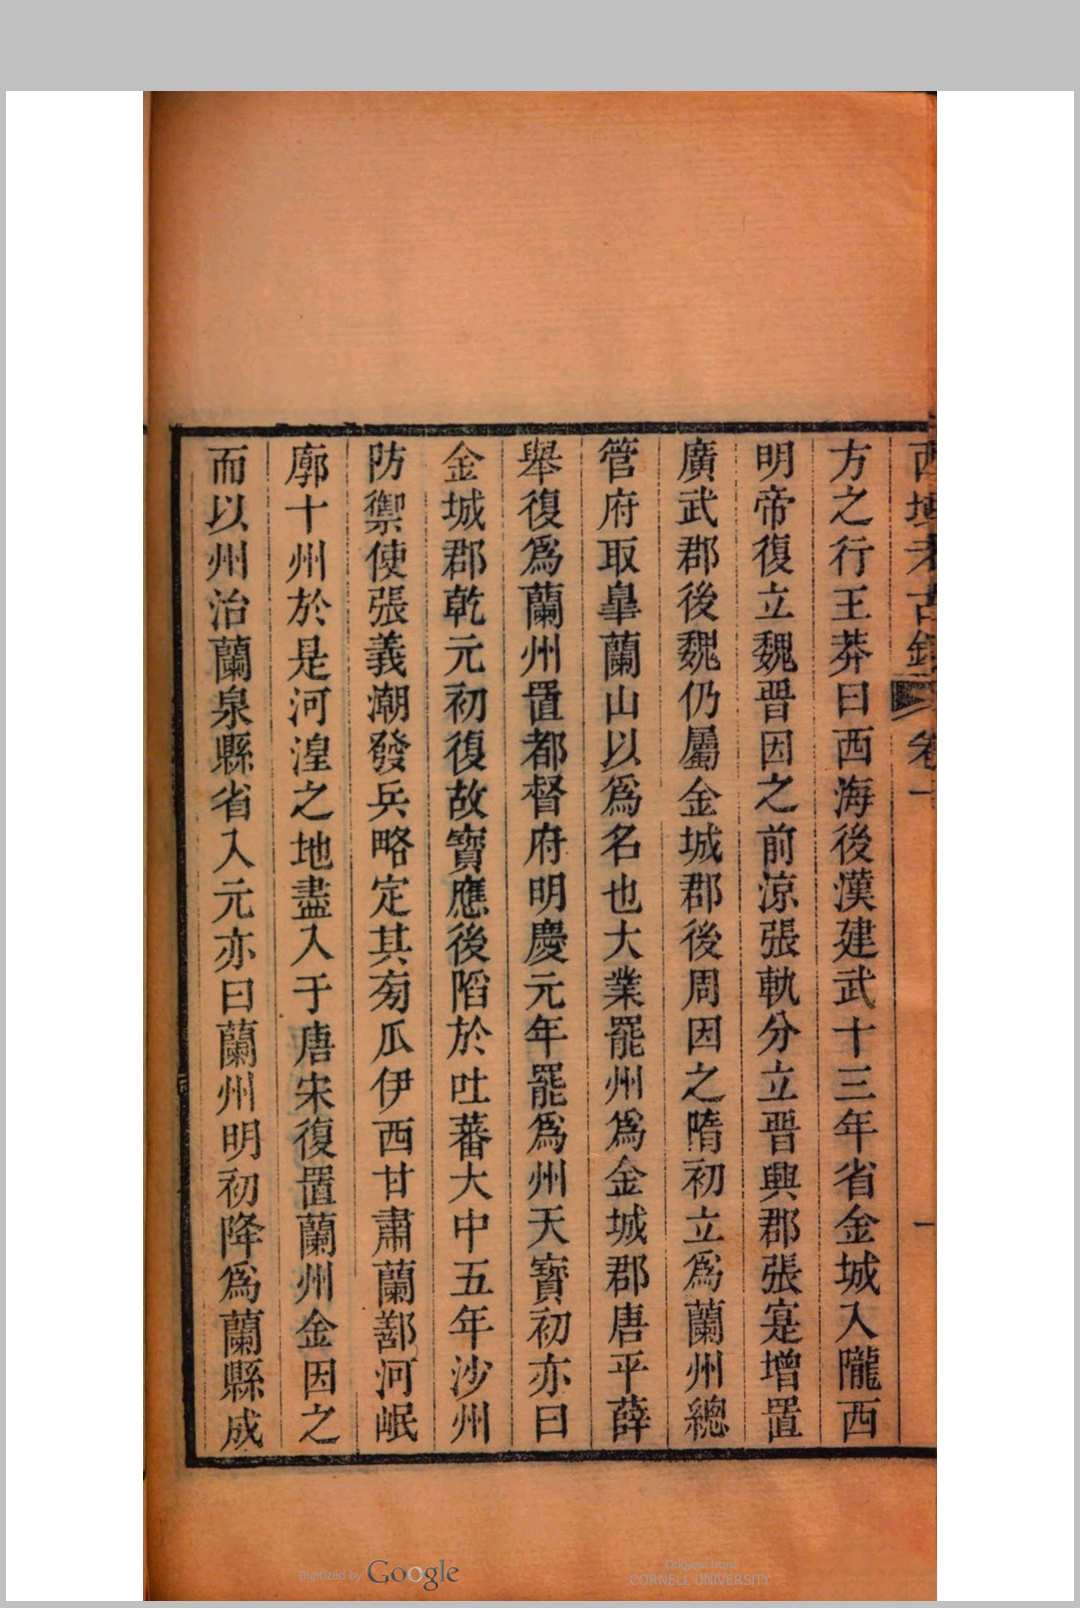 西域考古錄 卷一 一
方之行王莽曰西海後漢建武十三年省金城入隴西
明帝復立魏晉因之前涼張軌分立晉興郡張寔增置
廣武郡後魏仍屬金城郡後周因之隋初立爲蘭州總
管府取臯蘭山以爲名也大業罷州爲金城郡唐平薛
舉復爲蘭州置都督府明慶元年罷爲州天寶初亦曰
金城郡乾元初復故寶應後陷於吐蕃大中五年沙州
防禦使張義潮發兵略定其旁瓜伊西甘肅蘭鄯河岷
廓十州於是河湟之地盡入于唐宋復置蘭州金因之
而以州治蘭泉縣省入元亦曰蘭州明初降爲蘭縣成
Digitized by Google
Original from
CORNELL UNIVERSITY